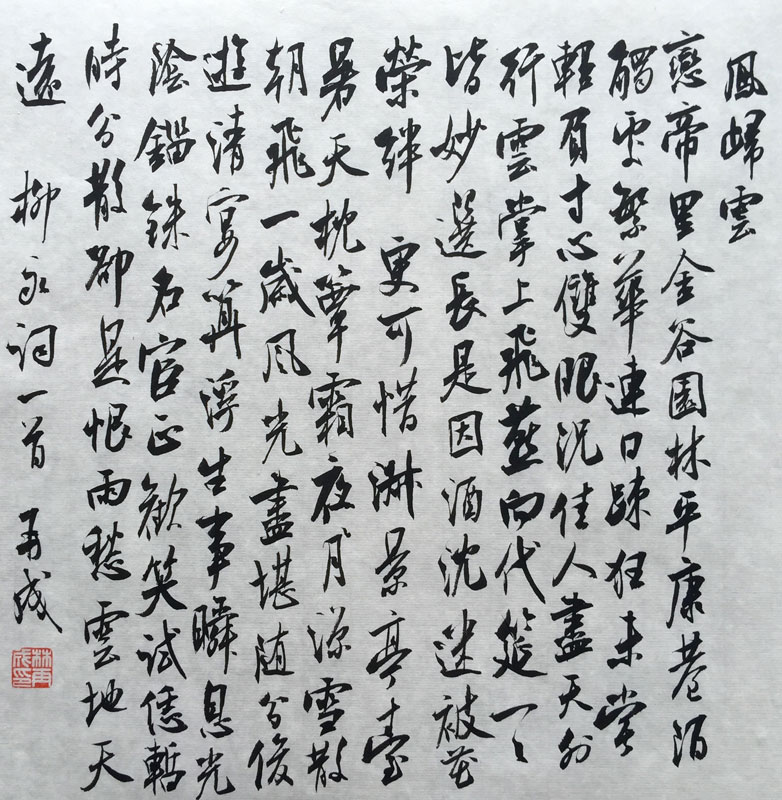 鳳歸雲
戀帝里金谷園林平康巷陌
觸處繁華連日疎狂未嘗
輕負寸心雙眼況佳人盡天外
行雲掌上飛燕向代筵一々
皆妙選長是因酒沈迷被花
縈絆 更可惜淑景亭臺
暑天枕簟霜夜月涼雪散
朝飛一歲風光盡堪随分俊
遊清宴算浮生事瞬息光
陰錙銖名宦正歡笑試恁暫
時分散卻是恨雨愁雲地天
遠 柳永詞一首 再成
林再成印